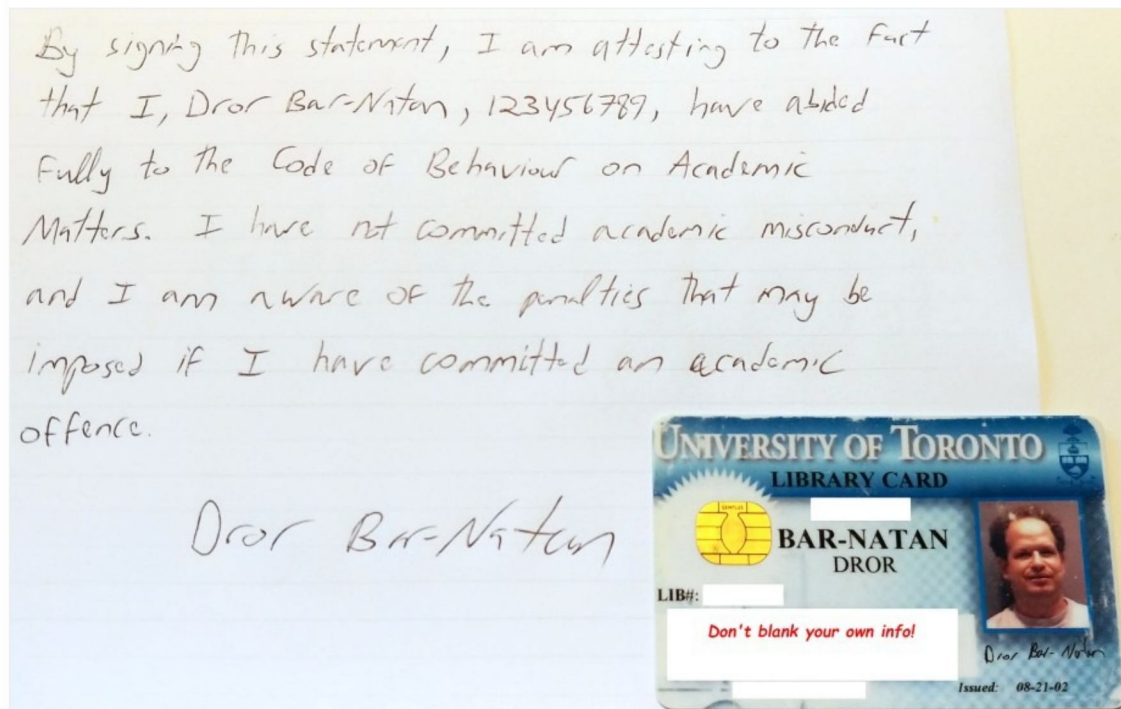 By signing this statement, I am attesting to the fact
that I, Dror Bar-Natan, 123456789, have abided
fully to the Code of Behaviour on Academic
Matters. I have not committed academic misconduct,
and I am aware of the penalties that may be
imposed if I have committed an academic
offence.
Dror Bar-Natan
UNIVERSITY OF TORONTO
LIBRARY CARD
BAR-NATAN
DROR
LIB#:
Don't blank your own info!
Dror Bar-Natan
Issued: 08-21-02